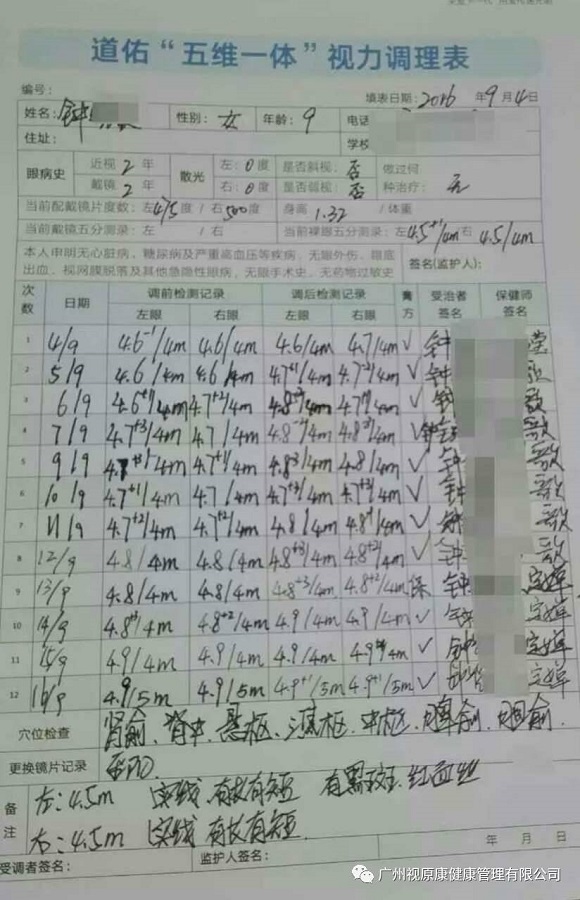 道佑“五维一体”视力调理表
编号：
填表日期：2016 年 9 月 4 日
姓名：钟 性别：女 年龄：9 电话
住址： 学校
眼病史 近视 2 年 散光 左：0 度 是否斜视：否 做过何
戴镜 2 年 右：0 度 是否弱视：否 种治疗：无
当前配戴镜片度数：左 475 度 / 右 500 度 身高 1.32 /体重
当前戴镜五分测录：左 / 右 当前裸眼五分测录：左 4.5⁺¹/4m 右 4.5/4m
本人申明无心脏病，糖尿病及严重高血压等疾病，无眼外伤，眼底
出血，视网膜脱落及其他急隐性眼病，无眼手术史，无药物过敏史 签名(监护人)：
次数 日期 调前检测记录 调后检测记录 膏方 受治者签名 保健师签名
左眼 右眼 左眼 右眼
1 4/9 4.6⁻¹/4m 4.6/4m 4.6/4m 4.7/4m √ 钟
2 5/9 4.6/4m 4.6/4m 4.7⁺¹/4m 4.7⁻²/4m √ 钟
3 6/9 4.6⁺¹/4m 4.7⁺²/4m 4.8/4m 4.7/4m √ 钟
4 7/9 4.7⁺³/4m 4.7/4m 4.8/4m 4.8/4m √ 钟
5 9/9 4.7⁺³/4m 4.7⁺¹/4m 4.8/4m 4.8/4m √ 钟
6 10/9 4.7⁺¹/4m 4.7/4m 4.7⁺³/4m 4.7⁺³/4m √ 钟
7 11/9 4.7⁺²/4m 4.7⁺²/4m 4.8/4m 4.8/4m √ 钟
8 12/9 4.8/4m 4.8/4m 4.8⁺³/4m 4.8⁺²/4m √ 钟
9 13/9 4.8/4m 4.8/4m 4.8⁺³/4m 4.8⁺²/4m 保 钟
10 14/9 4.8/4m 4.8⁺²/4m 4.9/4m 4.9/4m √ 钟
11 15/9 4.9/4m 4.9/4m 4.9/4m 4.9/4m √ 钟
12 16/9 4.9/5m 4.9/5m 4.9⁺¹/5m 4.9⁺¹/5m √
穴位检查 肾俞、脊中、悬枢、三焦枢、中枢、脾俞、胆俞.
更换镜片记录
备注 左：4.5m 实线 有长有短 有黑斑、红血丝
右：4.5m 实线 有长有短.
年 月 日
受调者签名： 监护人签名：
广州视原康健康管理有限公司